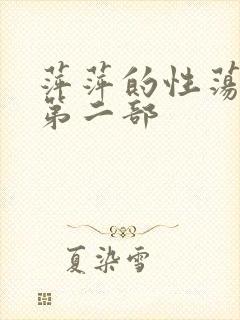 萍萍的性荡
第二部
夏染雪